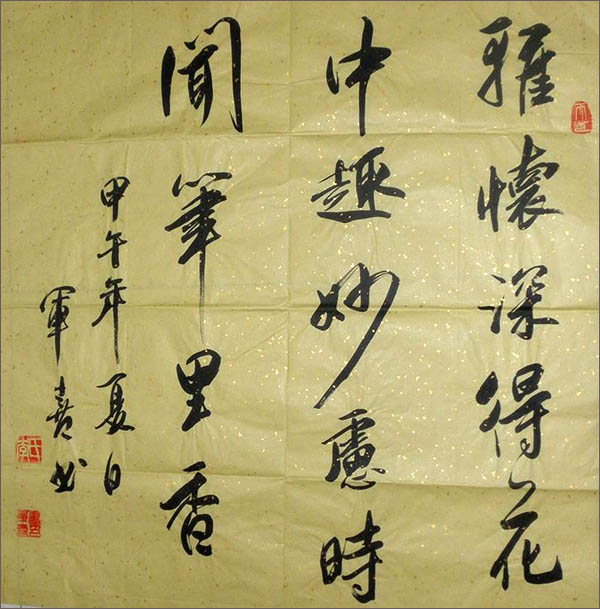 雅懷深得花
中趣妙慮時
聞筆里香
甲午年夏日
軍喜书